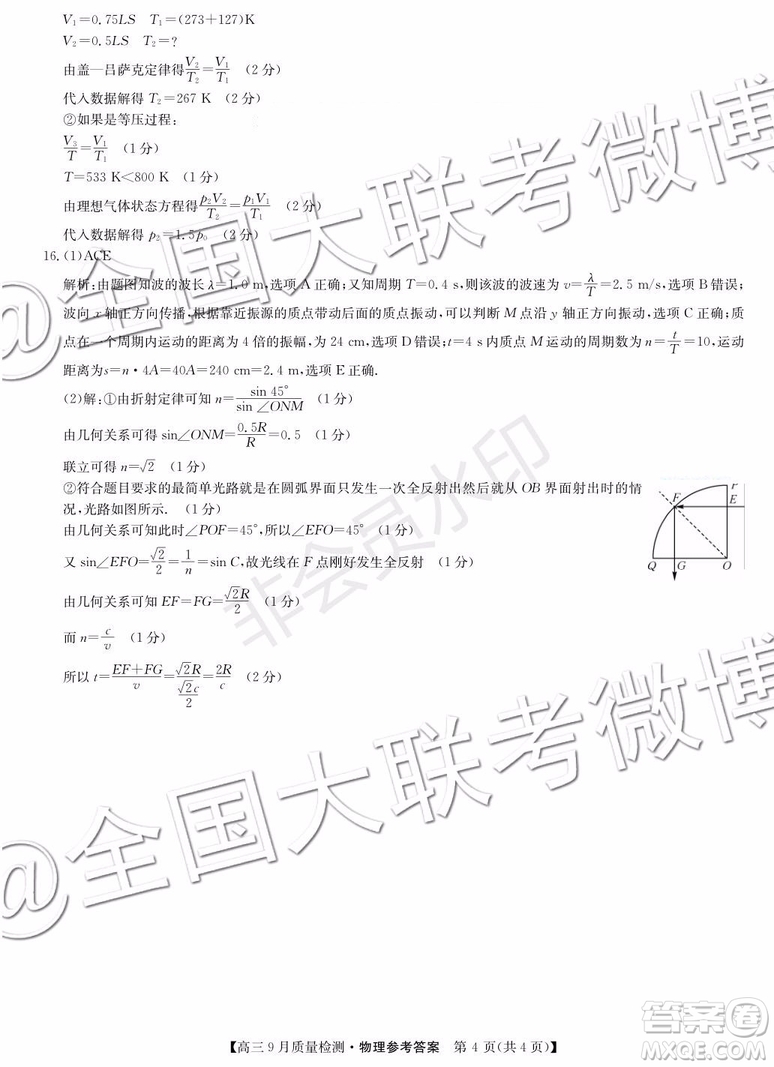 V₁=0.75LS T₁=(273+127)K
V₂=0.5LS T₂=?
由盖—吕萨克定律得V₂/T₂=V₁/T₁ (2分)
代入数据解得 T₂=267 K (2分)
②如果是等压过程:
V₃/T=V₁/T₁ (1分)
T=533 K<800 K (1分)
由理想气体状态方程得p₂V₂/T₂=p₁V₁/T₁ (2分)
代入数据解得 p₂=1.5p₀ (2分)
16.(1)ACE
解析:由题图知波的波长λ=1.0 m,选项 A 正确;又知周期 T=0.4 s,则该波的波速为 v=λ/T=2.5 m/s,选项 B 错误;
波向 x 轴正方向传播,根据靠近振源的质点带动后面的质点振动,可以判断 M 点沿 y 轴正方向振动,选项 C 正确;质
点在一个周期内运动的距离为 4 倍的振幅,为 24 cm,选项 D 错误;t=4 s 内质点 M 运动的周期数为 n=t/T=10,运动
距离为s=n·4A=40A=240 cm=2.4 m,选项 E 正确.
(2)解:①由折射定律可知 n=sin 45°/sin ∠ONM (1分)
由几何关系可得 sin∠ONM=0.5R/R=0.5 (1分)
联立可得 n=√2 (1分)
②符合题目要求的最简单光路就是在圆弧界面只发生一次全反射出然后就从 OB 界面射出时的情
况,光路如图所示. (1分)
由几何关系可知此时∠POF=45°,所以∠EFO=45° (1分)
又 sin∠EFO=√2/2=1/n=sin C,故光线在 F 点刚好发生全反射 (1分)
由几何关系可知 EF=FG=√2R/2 (1分)
而 n=c/v (1分)
所以 t=(EF+FG)/v=√2R/(√2c/2)=2R/c (2分)
P
F
E
Q
G
O
@全国大联考微博
非会员水印
@全国大联考微博
【高三9月质量检测·物理参考答案 第4页(共4页)】
答案圈
MXQE.COM